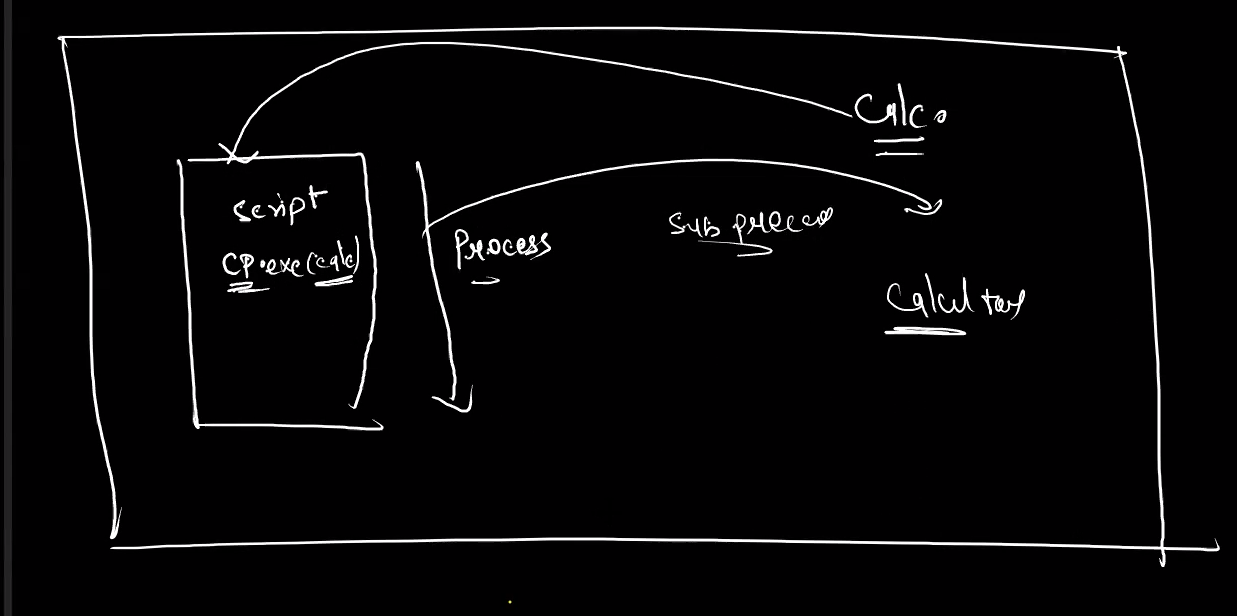 Calc.
Script
CP.exe(calc)
Process
Sub process